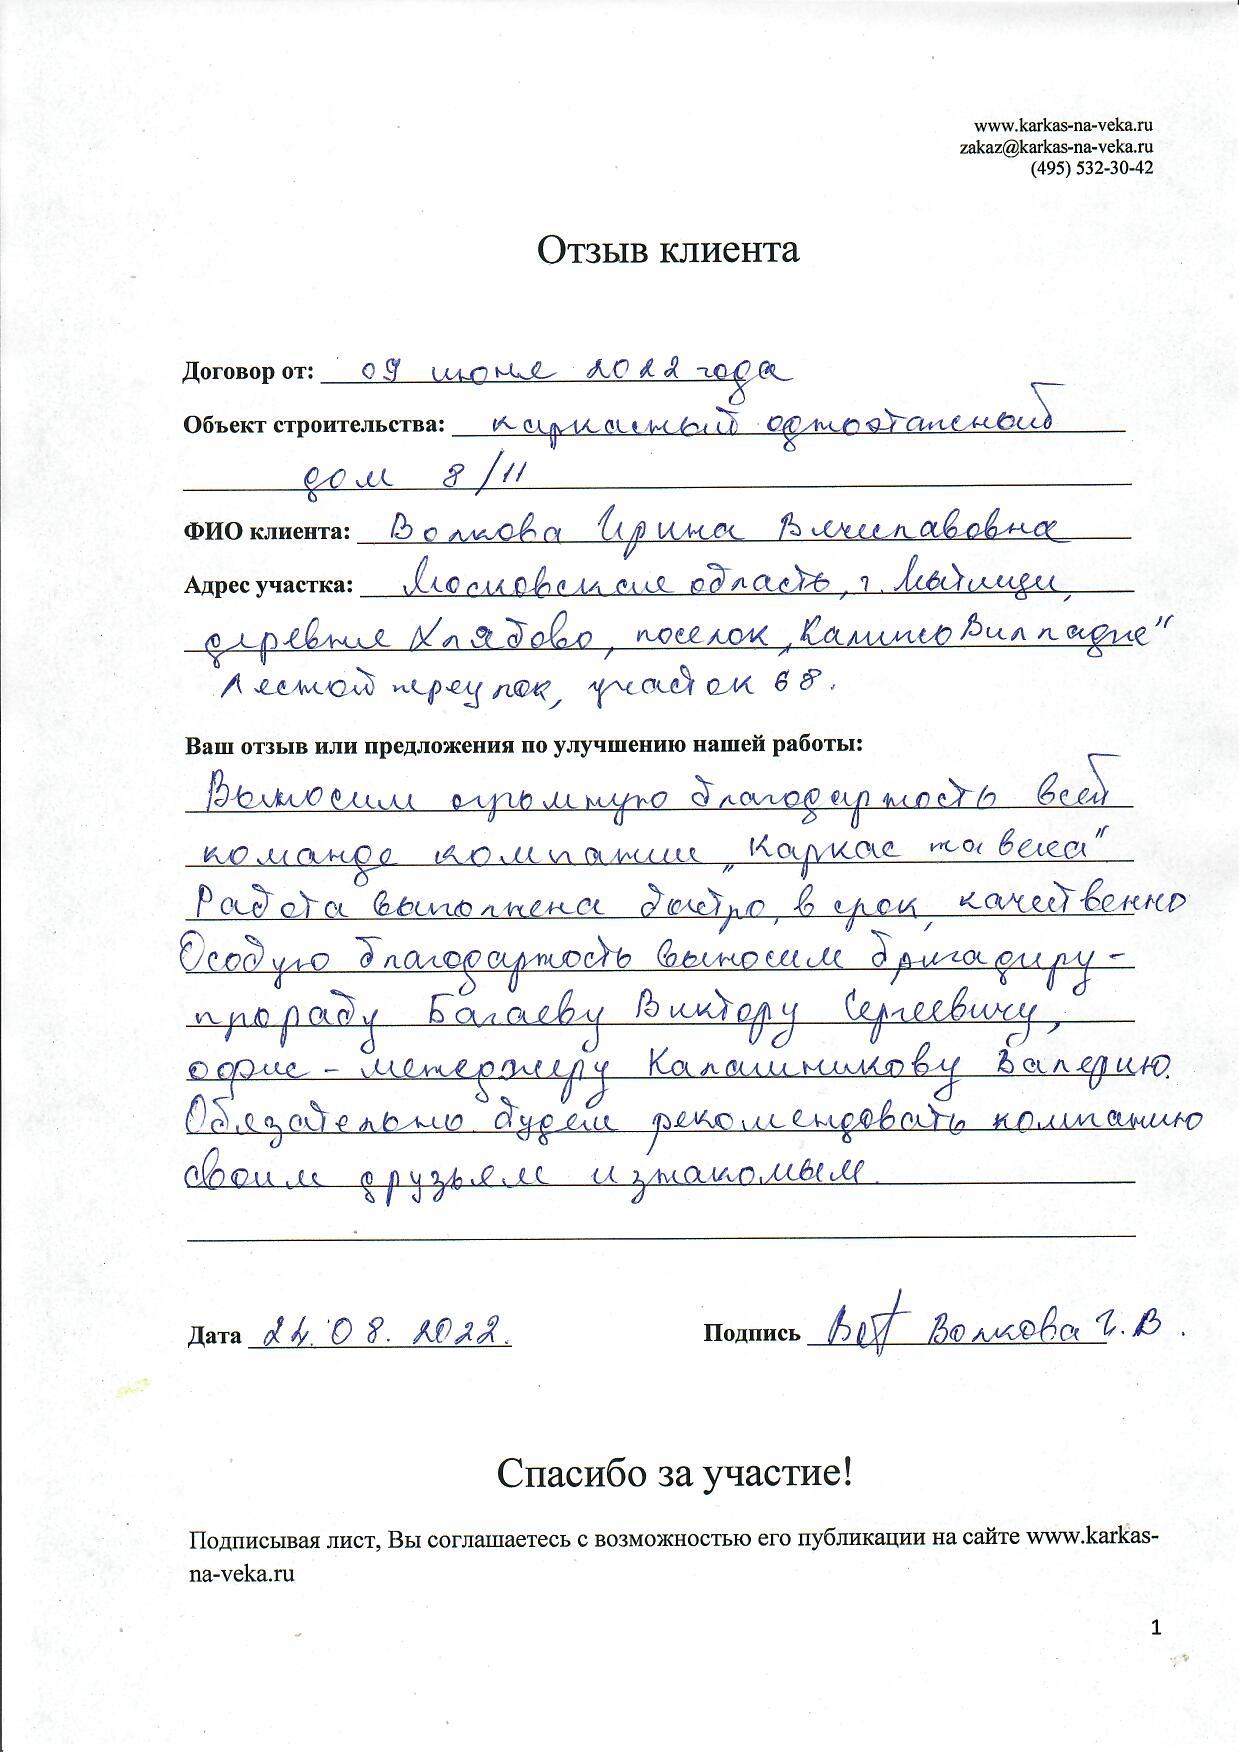 www.karkas-na-veka.ru
zakaz@karkas-na-veka.ru
(495) 532-30-42
Отзыв клиента
Договор от: 09 июня 2022 года
Объект строительства: каркасный одноэтажный
дом 8/11
ФИО клиента: Волкова Ирина Вячеславовна
Адрес участка: Московская область, г. Мытищи,
деревня Хлябово, поселок „Калипсо Вилладже"
Лесной переулок, участок 68.
Ваш отзыв или предложения по улучшению нашей работы:
Выносим огромную благодарность всей
команде компании „Каркас на века"
Работа выполнена быстро, в срок, качественно
Особую благодарность выносим бригадиру-
прорабу Багаеву Виктору Сергеевичу,
офис - менеджеру Калашникову Валерию.
Обязательно будем рекомендовать компанию
своим друзьям и знакомым.
Дата 24.08.2022. Подпись Волкова И.В.
Спасибо за участие!
Подписывая лист, Вы соглашаетесь с возможностью его публикации на сайте www.karkas-
na-veka.ru
1